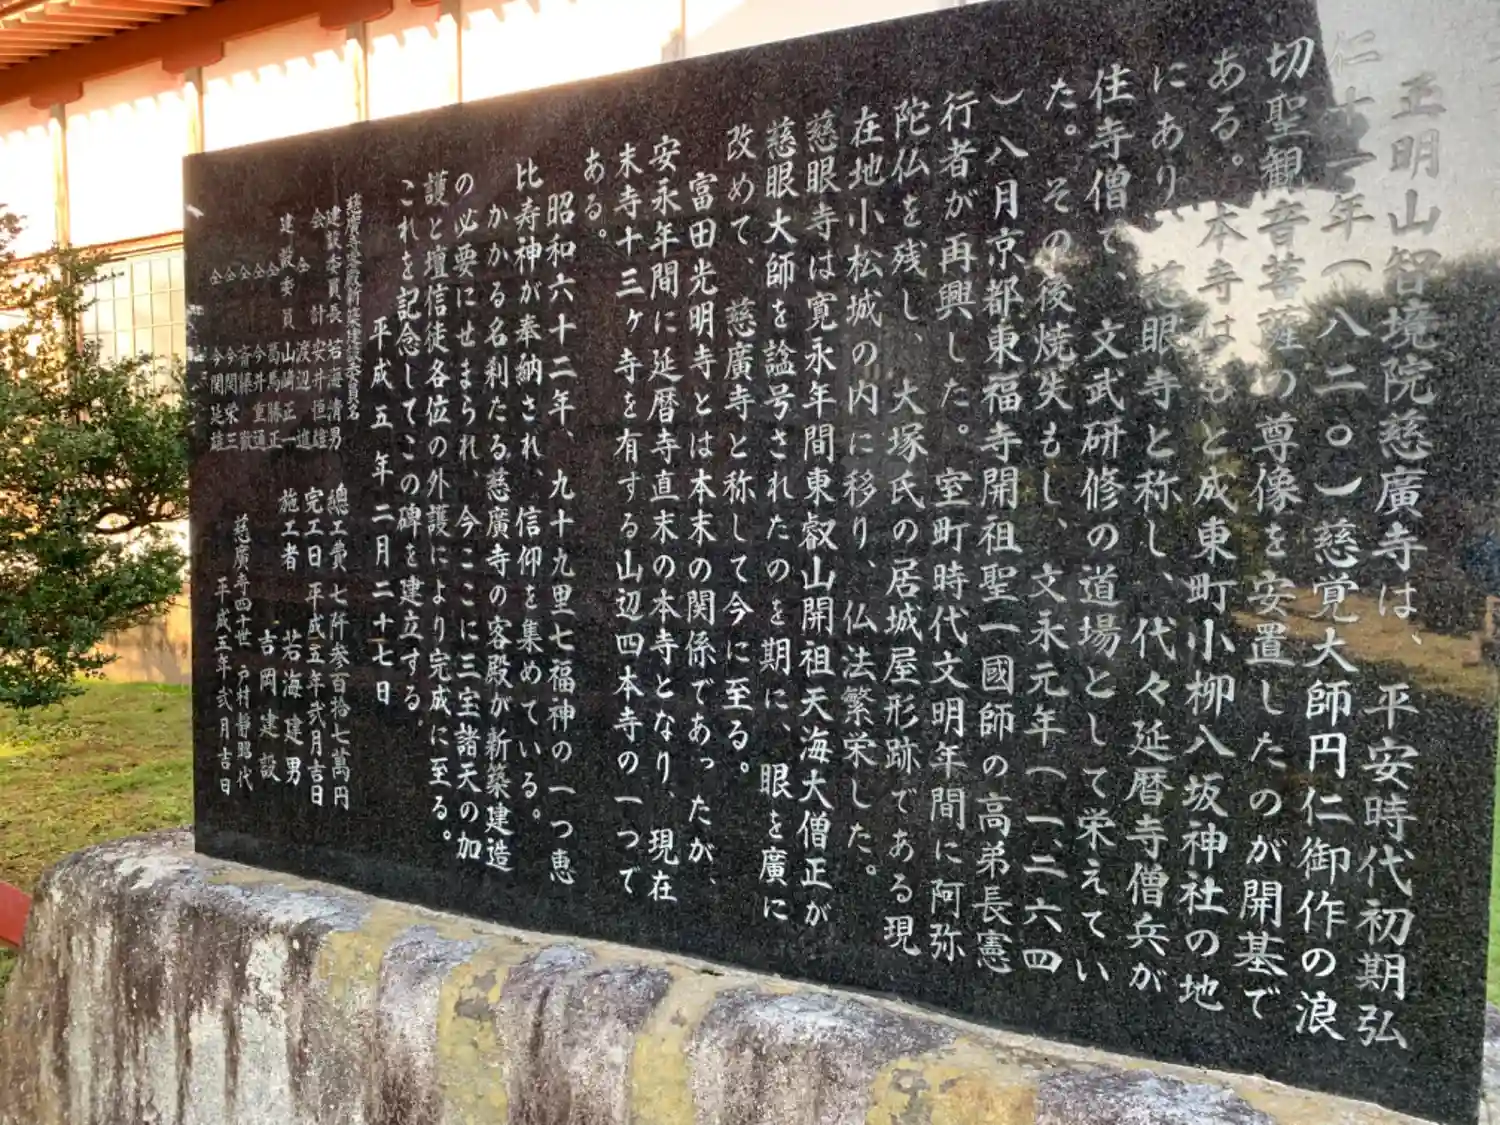 正明山智境院慈廣寺は、平安時代初期弘
仁十一年（八二〇）慈覚大師円仁御作の浪
切聖観音菩薩の尊像を安置したのが開基で
ある。本寺はもと成東町小柳八坂神社の地
にあり、慈眼寺と称し、代々延暦寺僧兵が
住寺僧で、文武研修の道場として栄えてい
た。その後焼失もし、文永元年（一、二六四
）八月京都東福寺開祖聖一國師の高弟長憲
行者が再興した。室町時代文明年間に阿弥
陀仏を残し、大塚氏の居城屋形跡である現
在地小松城の内に移り、仏法繁栄した。
慈眼寺は寛永年間東叡山開祖天海大僧正が
慈眼大師を諡号されたのを期に、眼を廣に
改めて、慈廣寺と称して今に至る。
富田光明寺とは本末の関係であったが、
安永年間に延暦寺直末の本寺となり、現在
末寺十三ヶ寺を有する山辺四本寺の一つで
ある。
昭和六十二年、九十九里七福神の一つ恵
比寿神が奉納され、信仰を集めている。
かかる名刹たる慈廣寺の客殿が新築建造
の必要にせまられ、今ここに三宝諸天の加
護と壇信徒各位の外護により完成に至る。
これを記念してこの碑を建立する。
平成五年二月二十七日
慈廣寺客殿新築建設委員名
建設委員長 若海清男
会計 安井恒雄
仝 渡辺 進
建設委員 山崎正一
仝 葛馬勝正
仝 今井重道
仝 斉藤 徹
仝 今関栄三
仝 今関延雄
總工費 七阡参百拾七萬円
完工日 平成五年弐月吉日
施工者 若海建男
吉岡建設
慈廣寺四十世 戸村靜昭代
平成五年弐月吉日